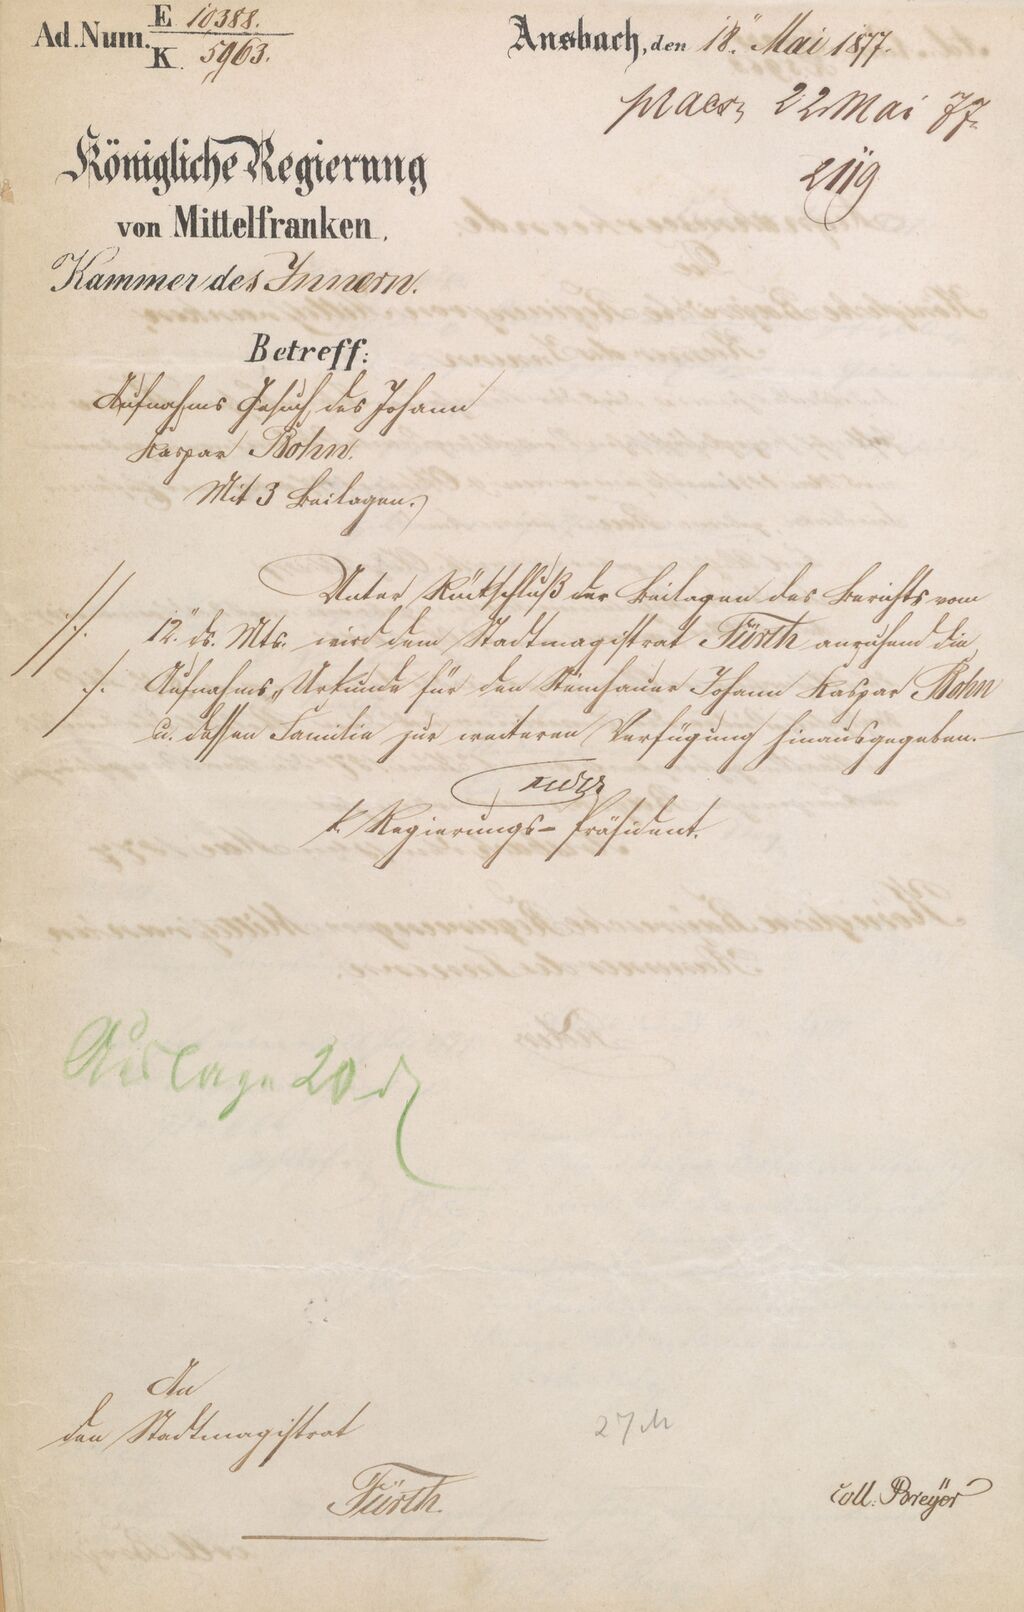 Ad. Num. E 10388.
K. 5963.
Ansbach, den 18. Mai 1877.
praes. 22 Mai 77.
2119
Königliche Regierung
von Mittelfranken.
Kammer des Innern.
Betreff:
Aufnahms Gesuch des Johann
Kaspar Bohn.
Mit 3 Beilagen.
Unter Rückschluß der Beilagen des Berichts vom
12. ds. Mts. wird dem Stadtmagistrat Fürth anruhend die
Aufnahms-Urkunde für den Steinhauer Johann Kaspar Bohn
u. dessen Familie zur weiteren Verfügung hinausgegeben.
k. Regierungs-Präsident.
Auslage 20 d
An
den Stadtmagistrat
Fürth.
27 M
coll. Breyer